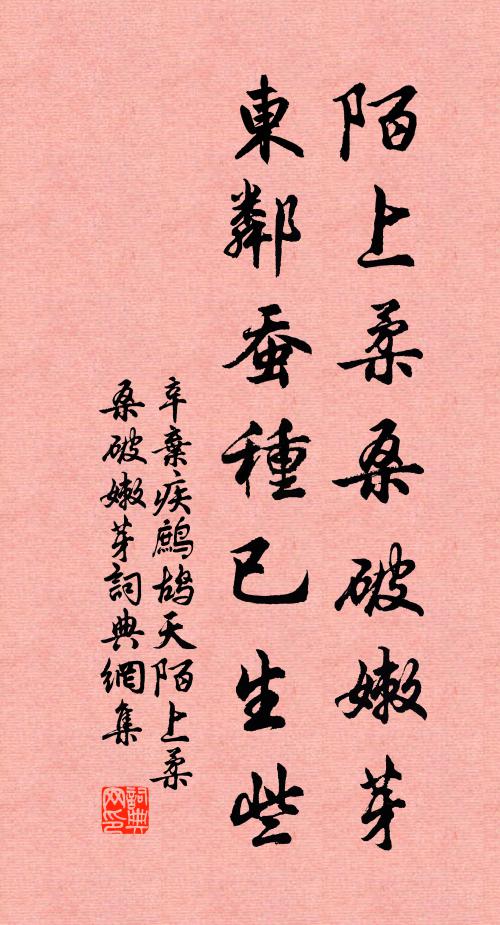 陌上柔桑破嫩芽
東鄰蚕種已生些
辛棄疾鷓鴣天陌上柔
桑破嫩芽詞典網集
詞典
网印